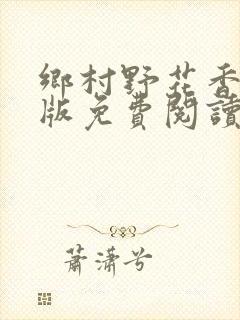 鄉村野花香
版免費閱讀
蕭瀟兮